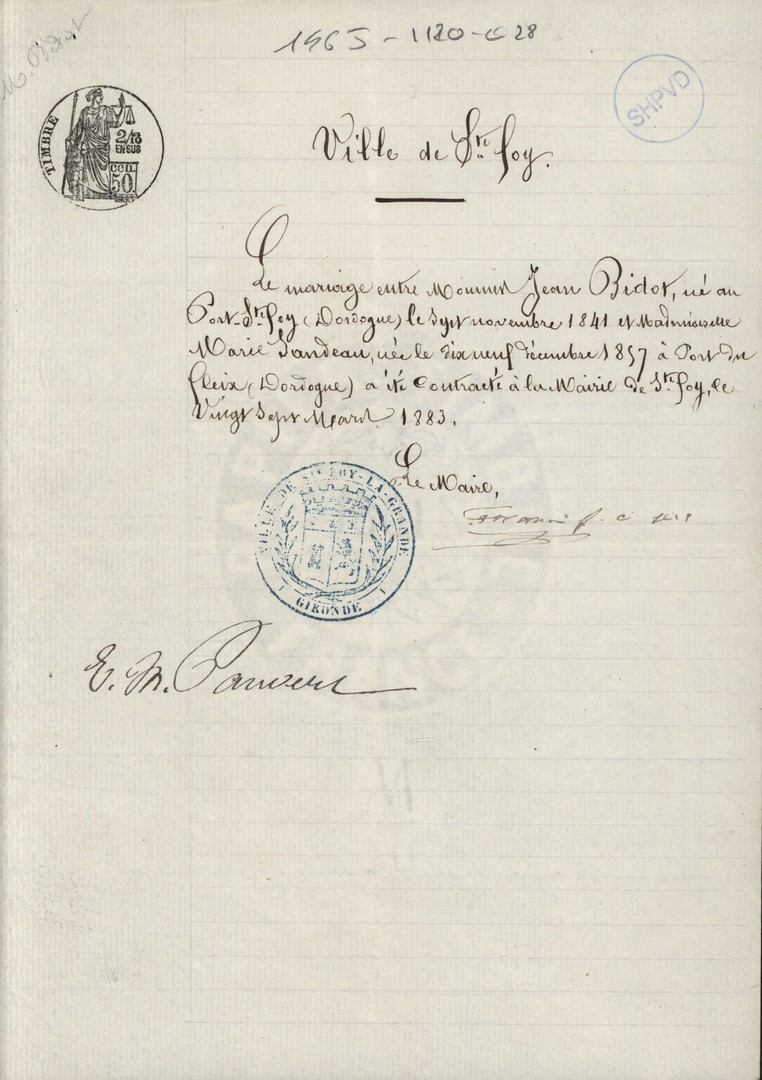 M. Bidot
196J - 1120-028
SHPVD
TIMBRE
2/10
EN SUS
50
CEN.
Ville de Ste Foy.
Le mariage entre Monsieur Jean Bidot, né au
Port-Ste Foy (Dordogne) le Sept novembre 1841 et Mademoiselle
Marie Landeau, née le dix neuf décembre 1857 à Port du
fleix (Dordogne) a été Contracté à la Mairie de Ste Foy, le
Vingt Sept Mars 1883.
Le Maire,
VILLE DE STE FOY-LA-GRANDE
GIRONDE
E. M.